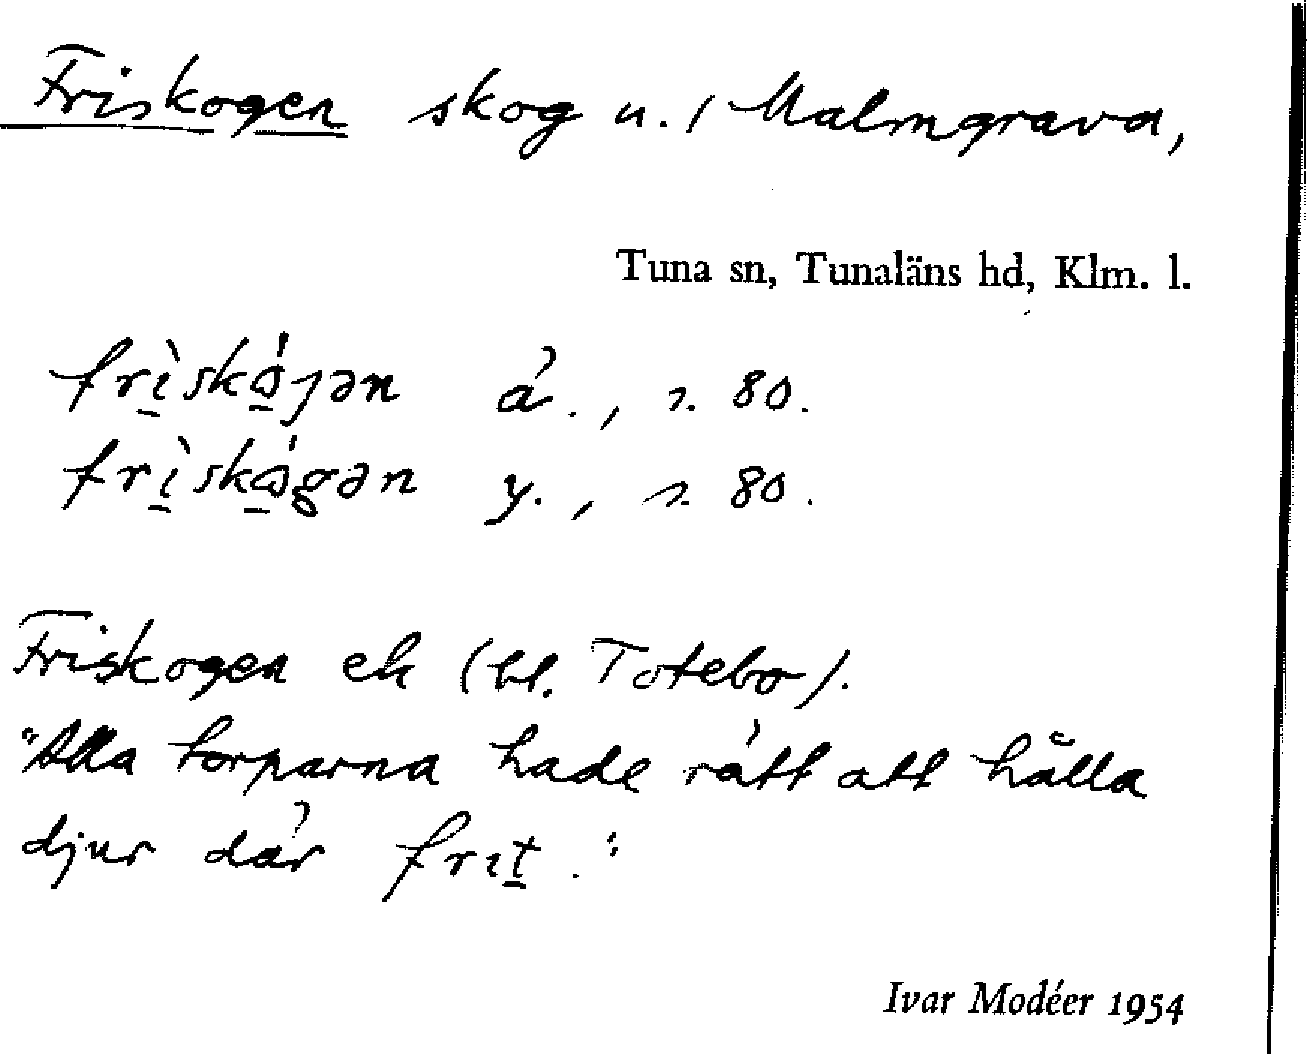 Friskogen skog u. / Malmgrava,
Tuna sn, Tunaläns hd, Klm. l.
frı̱̀skó̱ȷən ä., s. 80.
frı̱̀skó̱gən y., s. 80.
Friskogen ek (bl. Totebo).
"Alla torparna hade rätt att hålla
djur där frıṯ."
Ivar Modéer 1954